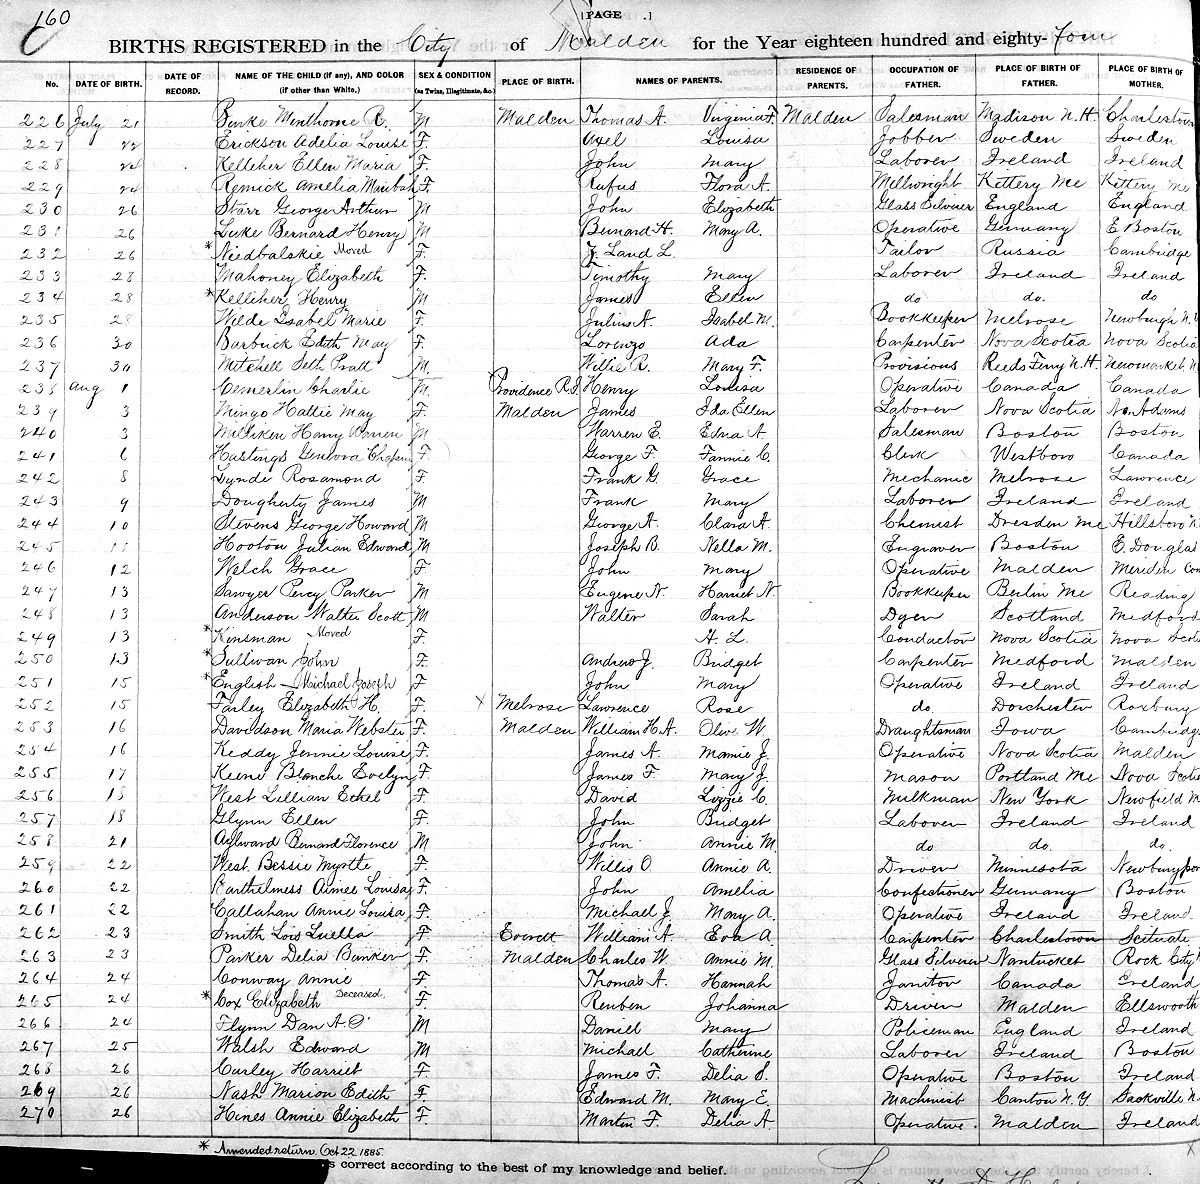 160
[PAGE .]
BIRTHS REGISTERED in the City of Malden for the Year eighteen hundred and eighty-Four
No. DATE OF BIRTH. DATE OF RECORD. NAME OF THE CHILD (if any), AND COLOR (if other than White.) SEX & CONDITION (as Twins, Illegitimate, &c.) PLACE OF BIRTH. NAMES OF PARENTS. RESIDENCE OF PARENTS. OCCUPATION OF FATHER. PLACE OF BIRTH OF FATHER. PLACE OF BIRTH OF MOTHER.
226 July 21 Burke Minthorne R. M Malden Thomas A. Virginia F. Malden Salesman Madison N.H. Charlestown
227 22 Erickson Adelia Louise F. Axel Louisa Jobber Sweden Sweden
228 24 Kelleher Ellen Maria F. John Mary Laborer Ireland Ireland
229 24 Remick Amelia F. Rufus Flora A. Millwright Kittery Me Kittery Me
230 26 Starr George Arthur M John Elizabeth Glass Silverer England England
231 26 Luke Bernard Henry M Bernard H. Mary A. Operative Germany E Boston
232 26 * Niedbalskie Moved F. J. Land L. Tailor Russia Cambridge
233 28 Mahoney Elizabeth F. Timothy Mary Laborer Ireland Ireland
234 28 * Kelliher, Henry M James Ellen do do. do
235 28 Wilde Isabel Marie F. Julius A. Isabel M. Bookkeeper Melrose Newburgh N.Y
236 30 Barbrick Edith May F. Lorenzo Ada Carpenter Nova Scotia Nova Scotia
237 30 Mitchell Seth Pratt M. Willis R. Mary F. Provisions Reeds Ferry N.H. Newmarket N
238 Aug 1 Cemerlin Charlie M. Providence R.I. Henry Louisa Operative Canada Canada
239 3 Mingo Hattie May F. Malden James Ida Ellen Laborer Nova Scotia No. Adams
240 3 Milliken Harry Warren M Warren E. Edna A. Salesman Boston Boston
241 6 Hastings Genevra Chapin F George F. Fannie C. Clerk Westboro Canada
242 8 Lynde Rosamond F Frank G. Grace Mechanic Melrose Lawrence
243 9 Dougherty James M Frank Mary Laborer Ireland Ireland
244 10 Stevens George Howard M George A. Clara A. Chemist Dresden Me Hillsboro N.
245 11 Hooton Julian Edward M Joseph B. Nella M. Engraver Boston E. Douglas
246 12 Welch Grace F John Mary Operative Malden Meriden Con
247 13 Sawyer Percy Parker M Eugene N. Harriet N. Bookkeeper Berlin Me Reading
248 13 Anderson Walter Scott M Walter Sarah Dyer Scotland Medford
249 13 * Kinsman Moved F. H. L. Conductor Nova Scotia Nova Scotia
250 13 * Sullivan John F. Andrew J. Bridget Carpenter Medford Malden
251 15 * English Michael Joseph F John Mary Operative Ireland Ireland
252 15 Farley Elizabeth H. F. x Melrose Lawrence Rose do. Dorchester Roxbury
253 16 Davidson Maria Webster F. Malden William H.A. Olive W Draughtsman Iowa Cambridge
254 16 Keddy Jennie Louise F. James A. Mamie J. Operative Nova Scotia Malden
255 17 Keene Blanche Evelyn F. James F. Mary J. Mason Portland Me Nova Scotia
256 18 West Lillian Ethel F. David Lizzie C. Milkman New York Newfield M
257 18 Glynn Ellen F. John Bridget Laborer Ireland Ireland
258 21 Aylward Bernard Florence M John Annie M. do do. do.
259 22 West Bessie Myrtle F. Willis O. Annie A. Driver Minnesota Newburyport
260 22 Barthelmess Aimee Louisa F. John Amelia Confectioner Germany Boston
261 22 Callahan Annie Louisa F. Michael J. Mary A. Operative Ireland Ireland
262 23 Smith Lois Luella F. Everett William A. Eva A. Carpenter Charlestown Scituate
263 23 Parker Delia Bunker F. Malden Charles W. Annie M. Glass Silverer Nantucket Rock City
264 24 Conway Annie F. Thomas A. Hannah Janitor Canada Ireland
265 24 * Cox Elizabeth Deceased. F. Reuben Johanna Driver Malden Ellsworth
266 24 Flynn Dan A. O' M Daniel Mary Policeman England Ireland
267 25 Walsh Edward M Michael Catherine Laborer Ireland Boston
268 26 Curley Harriet F James F. Delia S. Operative Boston Ireland
269 26 Nash Marion Edith F. Edward M. Mary E. Machinist Canton N.Y Sackville N.
270 26 Hines Annie Elizabeth F. Martin F. Delia A Operative. Malden Ireland
* Amended return. Oct 22 1885
s correct according to the best of my knowledge and belief.